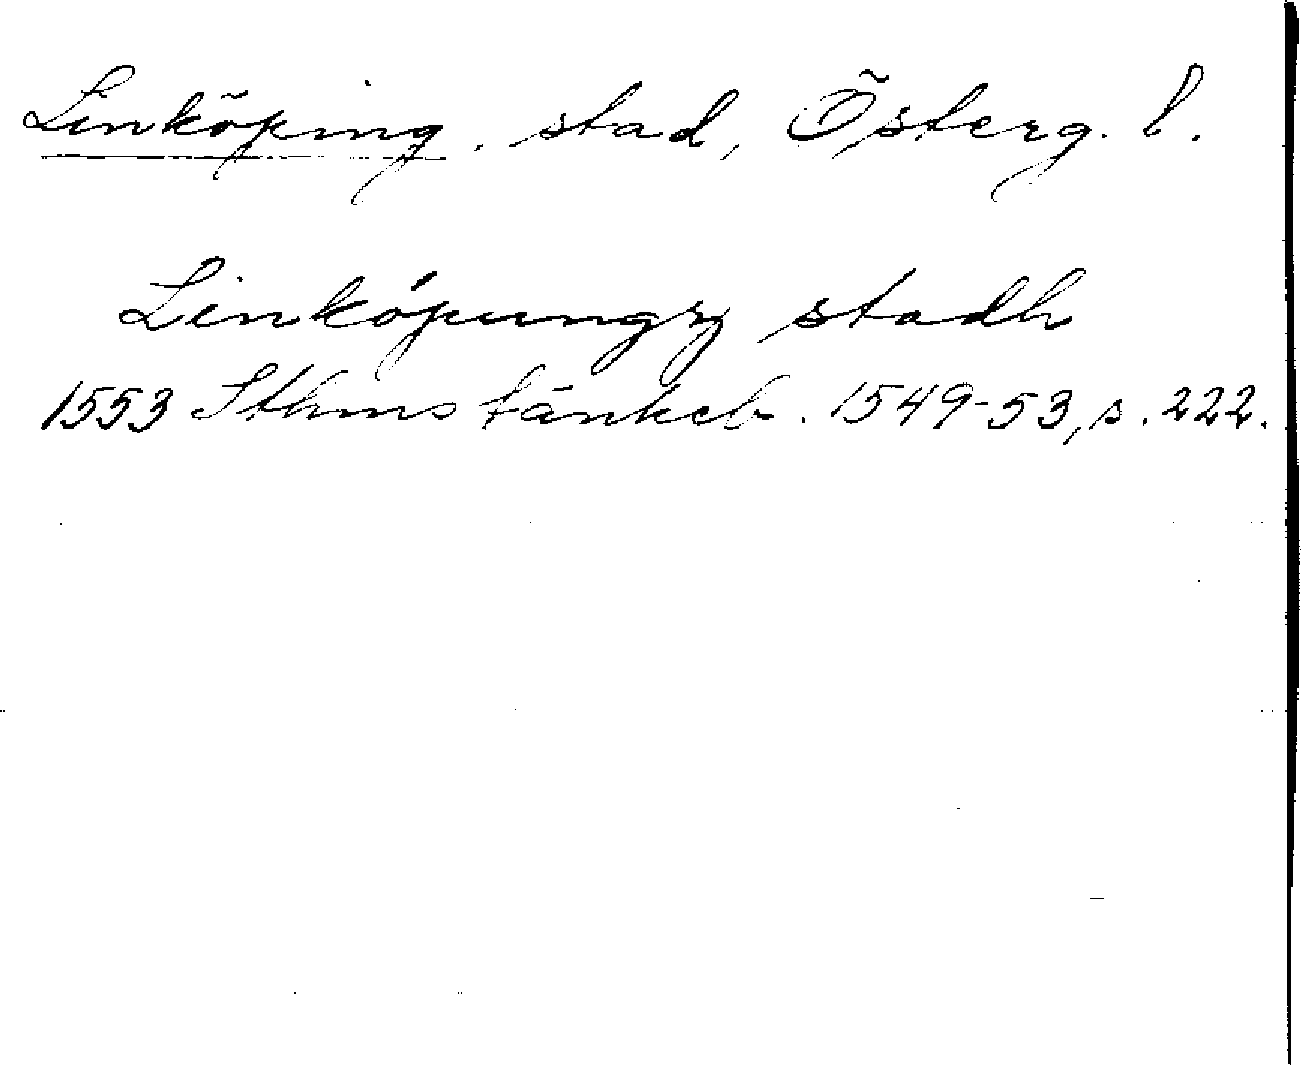 Linköping, stad, Österg. l.
Linkópungz stadh
1553 Sthms tänkeb. 1549-53, s. 222.